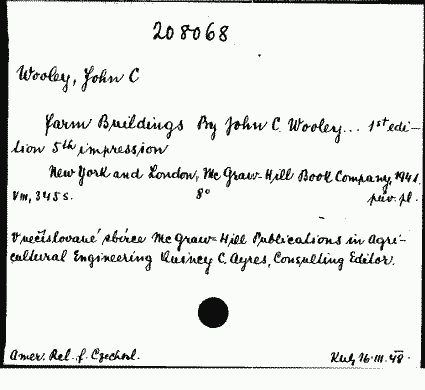 208068
Wooley, John C
Farm Buildings By John C. Wooley... 1st edi-
tion 5th impression
New York and London, Mc Graw-Hill Book Company, 1941.
VIII, 345 s. 8° pův. pl.
V nečíslované sbírce Mc Graw-Hill Publications in Agri-
cultural Engineering Quincy C. Ayres, Consulting Editor.
Amer. Rel. f. Czechosl. 16.III.48.